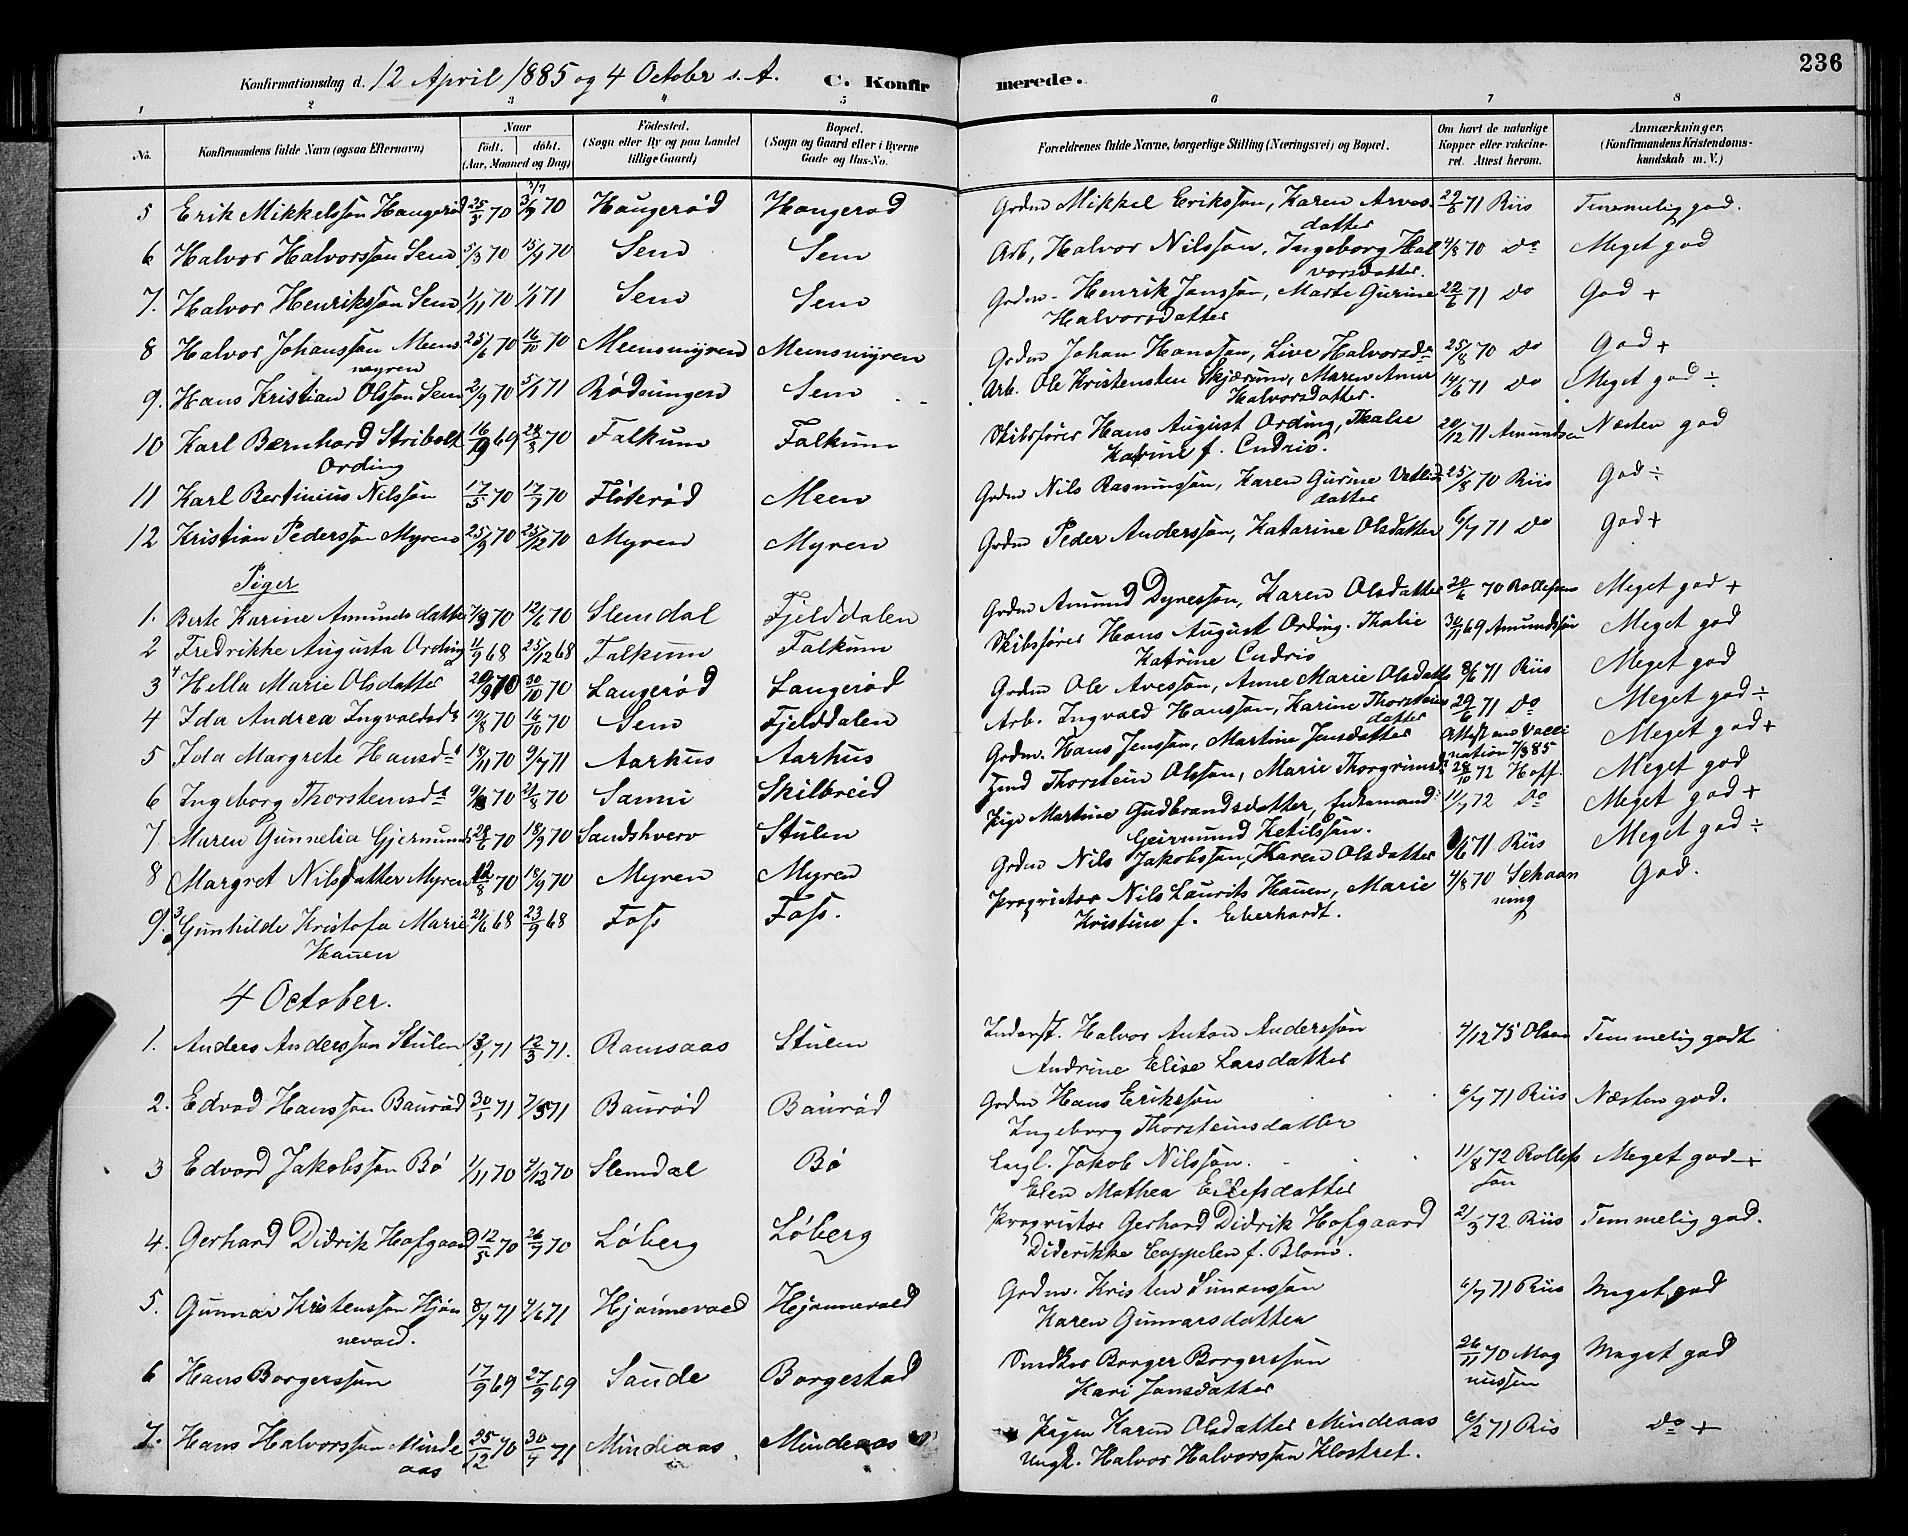 236
Konfirmationsdag d. 12 April 1885 og 4 October s. A. C. Konfirmerede.
1 2 3 4 5 6 7 8
No. Konfirmandens fulde Navn (ogsaa Efternavn) Naar født. døbt. (Aar, Maaned og Dag) Födested. (Sogn eller By og paa Landet tillige Gaard) Bopæl. (Sogn og Gaard eller i Byerne Gade og Hus-No. Forældrenes fulde Navne, borgerlige Stilling (Næringsvei) og Bopæl. Om havt de naturlige Kopper eller vakcineret. Attest herom. Anmærkninger. (Konfirmandens Kristendomskundskab m. V.)
5 Erik Mikkelssøn Haugerød 25/5 70 3/7 70 Haugerød Haugerød Grdm Mikkel Erikssøn, Karen Arvesdatter 29/6 71 Riis Temmelig god.
6 Halvor Halvorssøn Sem 5/3 70 15/4 70 Sem Sem Arb. Halvor Nilssøn, Ingeborg Halvorsdatter. 4/8 70 Do Meget god
7. Halvor Henrikssøn Sem 1/11 70 1/1 71 Sem Sem Grdm. Henrik Janssøn, Marte Gurine Halvorsdatter 22/6 71 Do God +
8 Halvor Johanssøn Meensmyren 25/6 70 16/10 70 Meensmyren Meensmyren Grdm Johan Hanssøn, Live Halvorsda 25/8 70 Do God +
9. Hans Kristian Olssøn Sem 2/9 70 5/1 71 Rødningen Sem Arb. Ole Kristensten Skjærum, Maren Anne Halvorsdatter. 14/6 71 Do Meget god ÷
10 Karl Bernhard Stribolt Ording 16/9 69 28/3 70 Falkum Falkum Skibsfører Hans August Ording, Thalie Katrine f. Cudrio. 20/12 71 Amundsen Næsten god
11 Karl Bertinius Nilssøn 17/5 70 17/7 70 Fløterød Meen Grdm Nils Rasmussøn, Karen Gurine datter 25/8 70 Riis God ÷
12 Kristian Pederssøn Myren 25/9 70 25/12 70 Myren Myren Grdm Peder Anderssøn, Katarine Olsdatter 6/7 71 Do God +
Piger
1. Berte Karine Amundsdatter 7/3 70 12/6 70 Slemdal Fjelddalen Grdm Amund Dyressøn, Karen Olsdatter 20/6 70 Rollefsen Meget god +
2 Fredrikke Augusta Ording 11/9 68 25/12 68 Falkum Falkum Skibsfører Hans August Ording. Thalie Katrine Cudrio 30/11 69 Amundsøn Meget god
3 Hella Marie Olsdatter 20/9 70 30/10 70 Langerød Langerød Grdm Ole Avessøn, Anne Marie Olsdatter 8/6 71 Riis Meget god
4 Ida Andrea Ingvaldsdr 19/8 70 16/10 70 Sem Fjelddalen Arb. Ingvald Hanssøn, Karine Thorsteinsdatter 29/6 71 Do Meget god ÷
5 Ida Margrete Hansdr 18/11 70 9/7 71 Aarhus Aarhus Grdm. Hans Jenssøn, Martine Jensdatter Attest om Vaccination 7/3 85 Meget god +
6 Ingeborg Thorsteinsdr 9/3 70 21/8 70 Sanni Skilbreid Thorstein Olssøn, Marie Thorgrimsdr 28/10 72 Hoff. Meget god
7. Maren Gunnelia Gjermunds 28/6 70 18/9 70 Sandshverv Stulen Pige Martine Gudbrandsdatter, Enkemand Geirmund Ketilssøn. 11/7 72 Do Meget god +
8 Margret Nilsdatter Myren 12/8 70 18/9 70 Myren Myren Grdm Nils Jakobssøn, Karen Olsdatter 8/6 71 Riis Meget god ÷
9. Gunhilde Kristofa Marie Hauen 24/6 68 23/9 68 Foss Foss. Proprietær Nils Laurits Hauen, Marie Kristine f. Eberhardt. 4/8 70 Schaanning God.
4 October.
1. Anders Anderssøn Stulen 13/1 71 12/3 71. Ramsaas Stulen Inderst. Halvor Anton Anderssøn 4/12 75 Olsen Temmelig godt
Andrine Elise Larsdatter
2. Edvad Hanssøn Baurød 30/1 71 7/5 71 Baurød Baurød Grdm Hans Erikssøn 6/7 71 Riis Næsten god.
Ingeborg Thorsteinsdatter
3 Edvard Jakobssøn Bø 1/11 70 4/12 70 Slemdal Bø Jakob Nilssøn. 11/8 72 Rollefssøn Meget god +
Elen Mathea Eilefsdatter
4. Gerhard Didrik Hofgaard 12/5 70 26/9 70 Løberg Løberg Proprietær Gerhard Didrik Hofgaard 21/3 72 Riis Temmelig god.
Diderikke Cappelen f. Blom.
5. Gunnar Kristenssøn Hjønnevald. 8/4 71 4/6 71 Hjønnevald Hjønnevald Grdm. Kristen Simonssøn 6/7 71 Riis Meget god
Karen Gunnarsdatter
6 Hans Borgerssøn 17/9 69 27/9 69 Saude Borgestad Snedker Borger Borgerssøn 26/11 70 Magnussen Meget god
Kari Jansdatter
7. Hans Halvorssøn Mindeaas 25/12 70 30/4 71 Mindeaas Mindeaas Pigen Karen Olsdatter Mindeaas 6/2 71 Ris Do +
Ungk. Halvor Halvorssøn Klostret.